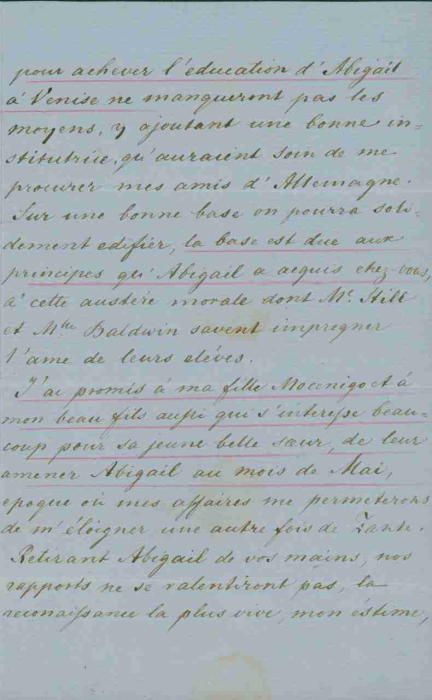 pour achever l'education d'Abigail
à Venise ne manqueront pas les
moyens, y ajoutant une bonne in=
stitutrice, qu'auraient soin de me
procurer mes amis d'Allemagne.
Sur une bonne base on pourra soli-
dement edifier, la base est due aux
principes qu'Abigail a acquis chez-vous,
à cette austère morale dont Mr. Hill
et Mlle Baldwin savent impregner
l'ame de leurs elèves.
J'ai promis à ma fille Mocenigo et à
mon beau fils aussi qui s'interesse beau-
coup pour sa jeune belle sœur, de leur
amener Abigail au mois de Mai,
epoque où mes affaires me permeterons
de m'éloigner une autre fois de Zante.
Retirant Abigail de vos mains, nos
rapports ne se ralentiront pas, la
reconaissance la plus vive, mon éstime,